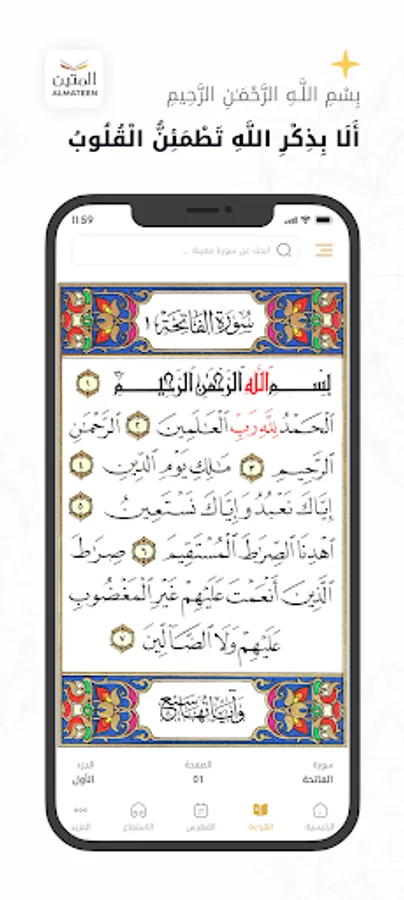 المتين
ALMATEEN
بِسْمِ اللَّهِ الرَّحْمَٰنِ الرَّحِيمِ
أَلَا بِذِكْرِ اللَّهِ تَطْمَئِنُّ الْقُلُوبُ
11:59
ابحث عن سورة معينة ...
سُورَةُ الفَاتِحَةِ ١
بِسْمِ اللَّهِ الرَّحْمَٰنِ الرَّحِيمِ ١
الْحَمْدُ لِلَّهِ رَبِّ الْعَالَمِينَ ٢ الرَّحْمَٰنِ
الرَّحِيمِ ٣ مَالِكِ يَوْمِ الدِّينِ ٤
إِيَّاكَ نَعْبُدُ وَإِيَّاكَ نَسْتَعِينُ ٥
اهْدِنَا الصِّرَاطَ الْمُسْتَقِيمَ ٦ صِرَاطَ
الَّذِينَ أَنْعَمْتَ عَلَيْهِمْ غَيْرِ الْمَغْضُوبِ
عَلَيْهِمْ وَلَا الضَّالِّينَ ٧
وَآيَاتُهَا سَبْعٌ
سورة الصفحة الجزء
الفاتحة 01 الأول
الرئيسية القراءة الفهرس الاستماع المزيد